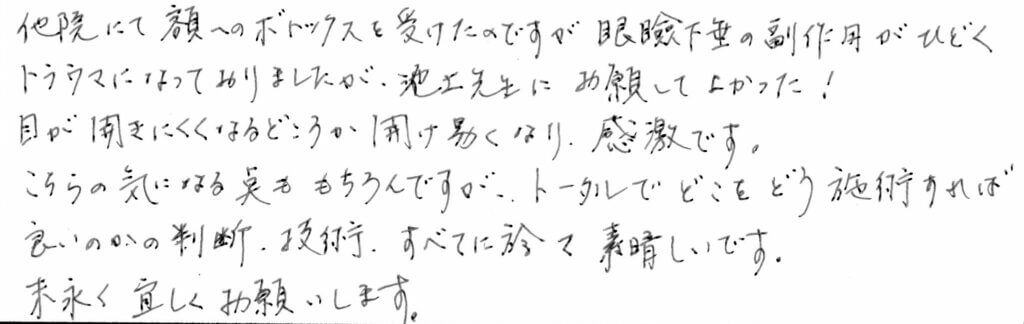 他院にて額へのボトックスを受けたのですが眼瞼下垂の副作用がひどく
トラウマになっておりましたが、池上先生にお願いしてよかった！
目が開きにくくなるどころか開け易くなり、感激です。
こちらの気になる点ももちろんですが、トータルでどこをどう施術すれば
良いのかの判断、技術、すべてに於て素晴しいです。
末永く宜しくお願いします。